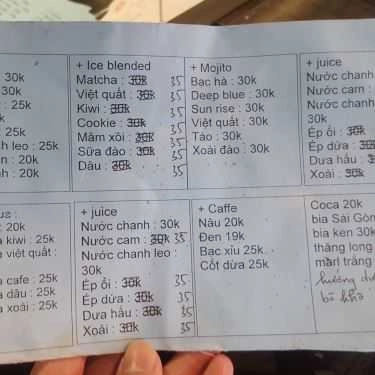 : 30k
: 30k
: 25k
: 25k
leo : 25k
: 20k
: 20k
+ Ice blended
Matcha : 30k 35
Việt quất : 30k 35
Kiwi : 30k 35
Cookie : 30k 35
Mâm xôi : 30k 35
Sữa đào : 30k 35
Dâu : 30k 35
+ Mojito
Bạc hà : 30k
Deep blue : 30k
Sun rise : 30k
Việt quất : 30k
Táo : 30k
Xoài đào : 30k
+ juice
Nước chanh
Nước cam :
Nước chanh
30k
Ép ổi : 30k
Ép dừa : 30k
Dưa hấu :
Xoài : 30k
: 20k
kiwi : 25k
việt quất :
cafe : 25k
dâu : 25k
xoài : 25k
+ juice
Nước chanh : 30k
Nước cam : 30k 35
Nước chanh leo :
30k
Ép ổi : 30k 35
Ép dừa : 30k 35
Dưa hấu : 30k 35
Xoài : 30k 35
+ Caffe
Nâu 20k
Đen 19k
Bạc xỉu 25k
Cốt dừa 25k
Coca 20k
bia Sài Gòn
bia ken 30k
thăng long
marl trắng
hướng dương
bò khô